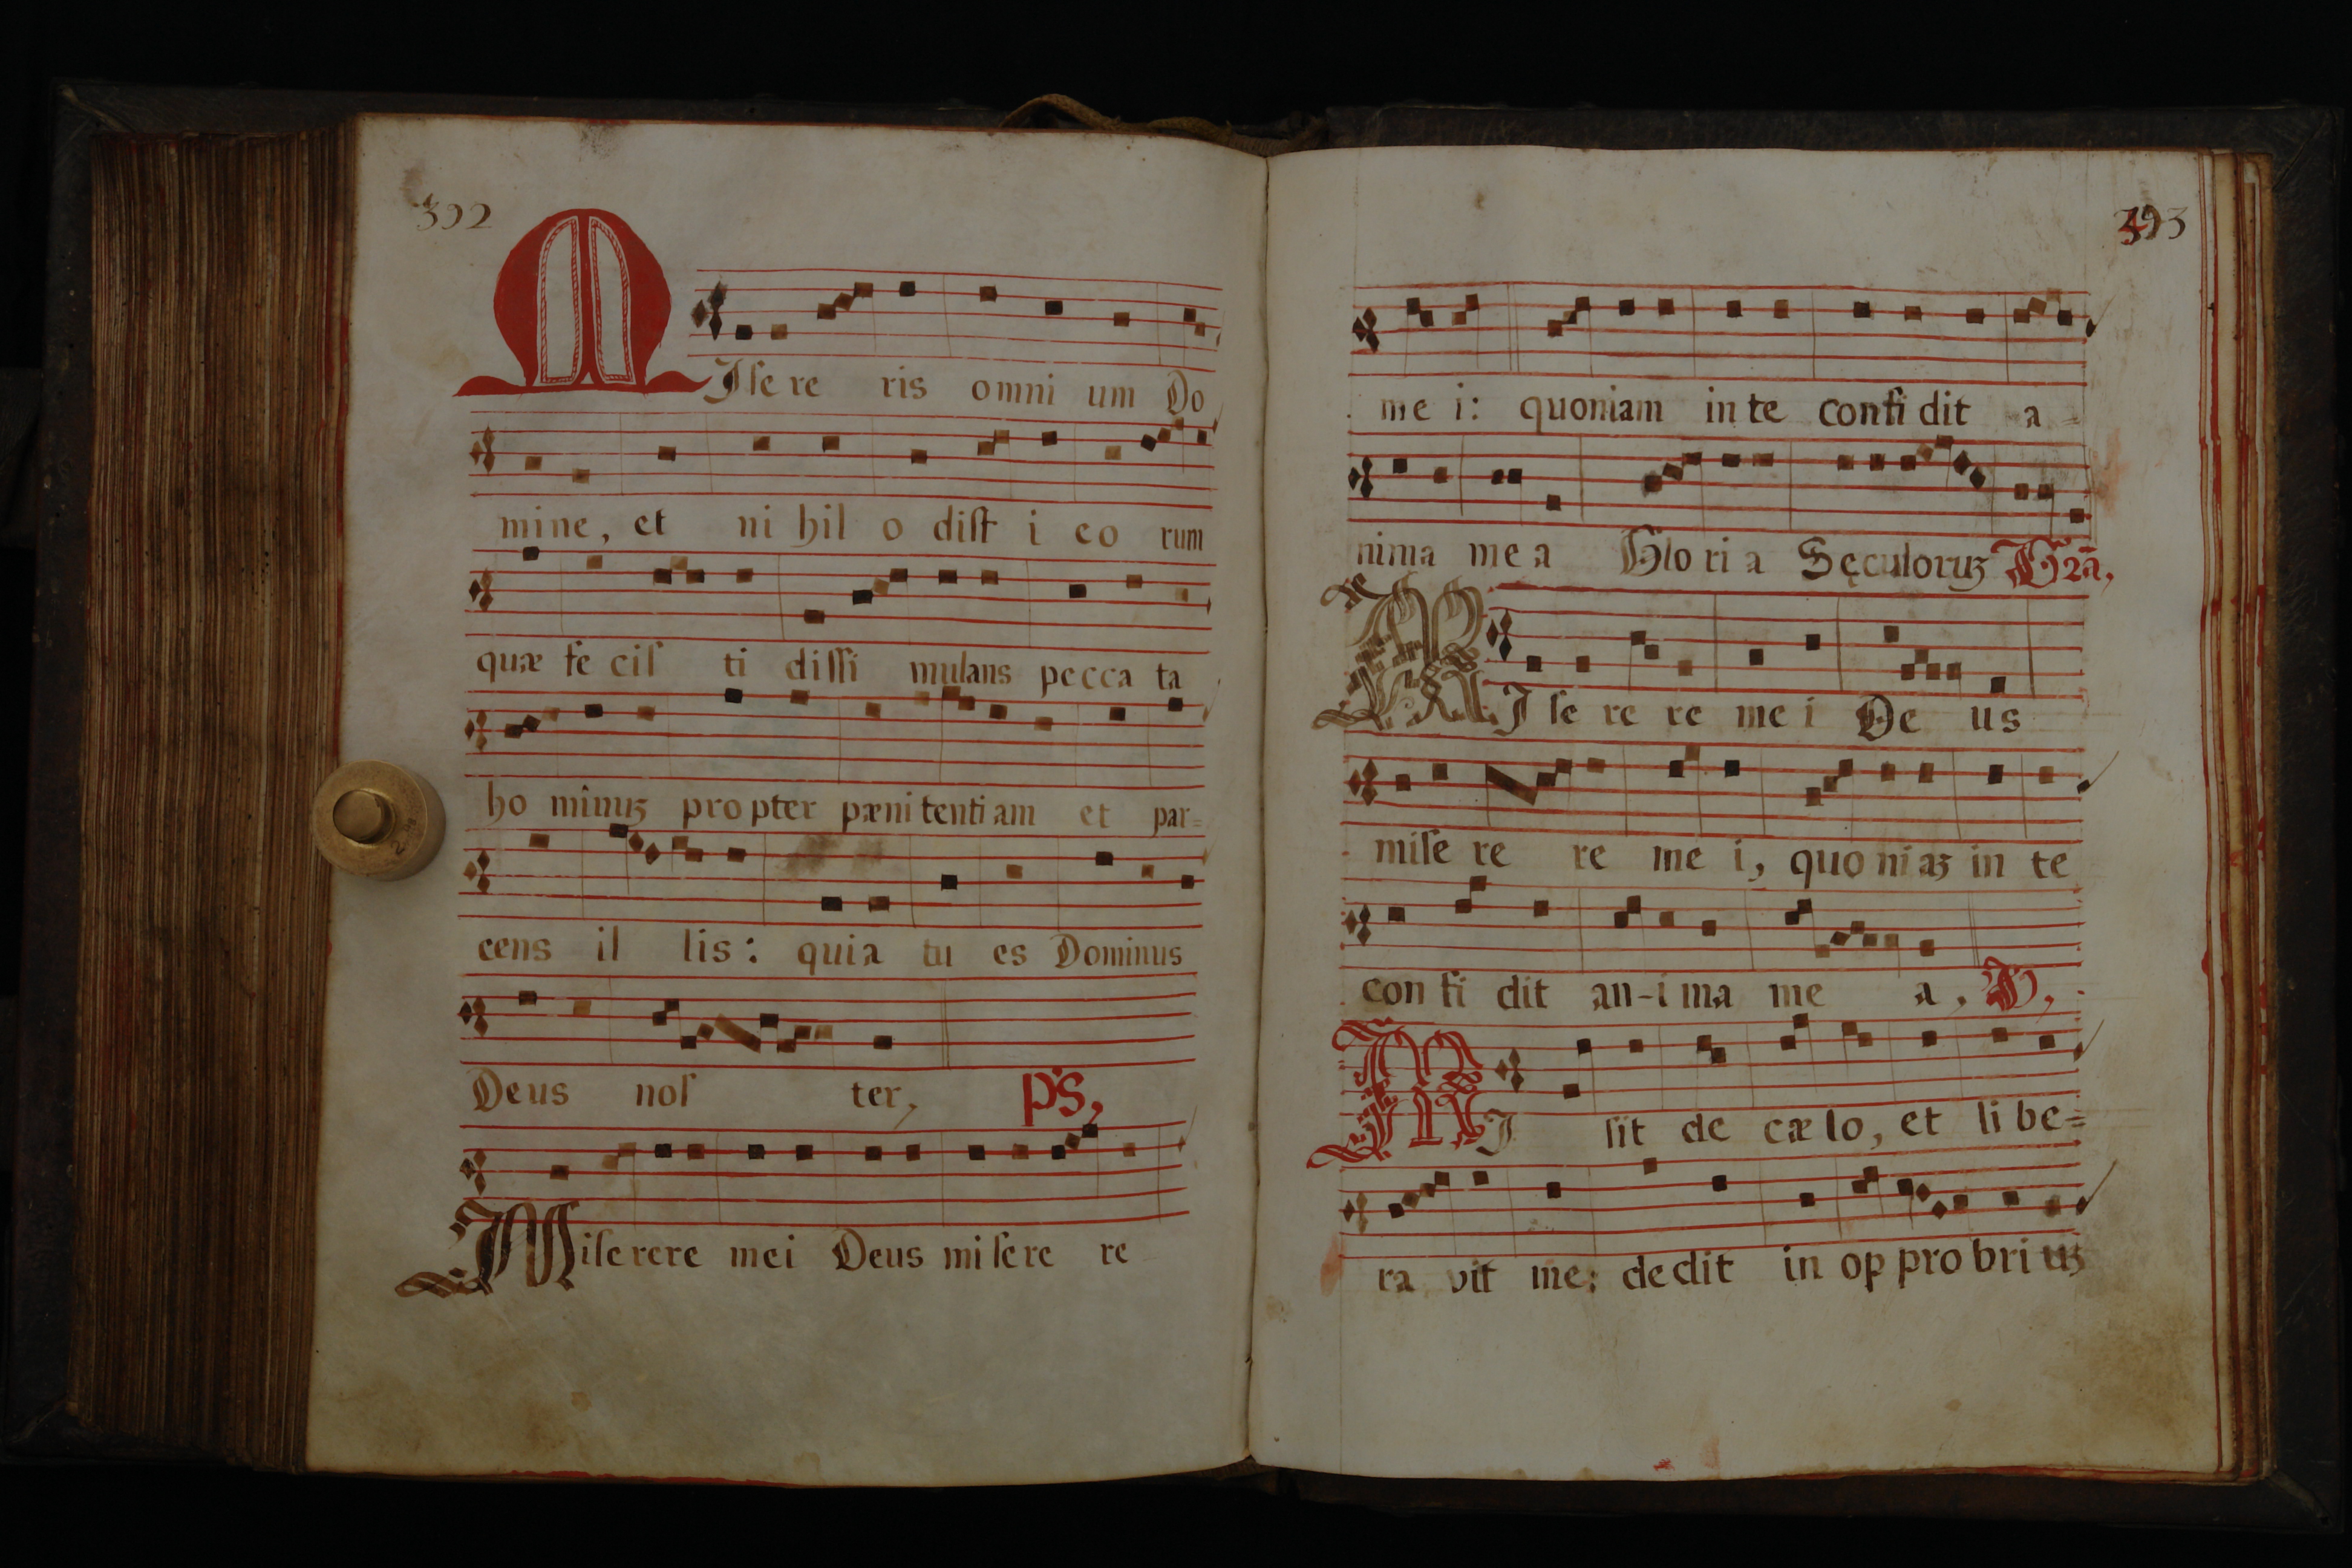 392
MIsere ris omni um Do
mine, et ni hil o dist i eo rum
quæ fe cis ti dissi mulans pecca ta
ho minuʒ propter pæni tenti am et par=
cens il lis: quia tu es Dominus
Deus nos ter, ps,
Miserere mei Deus mi sere re
393
me i: quoniam in te confi dit a=
nima me a Glo ri a Sęculoruʒ Gra,
MI se re re me i De us
mise re re me i, quo niaʒ in te
con fi dit an-i ma me a,
MI sit de cæ lo, et li be=
ra vit me: dedit in op pro bri uʒ